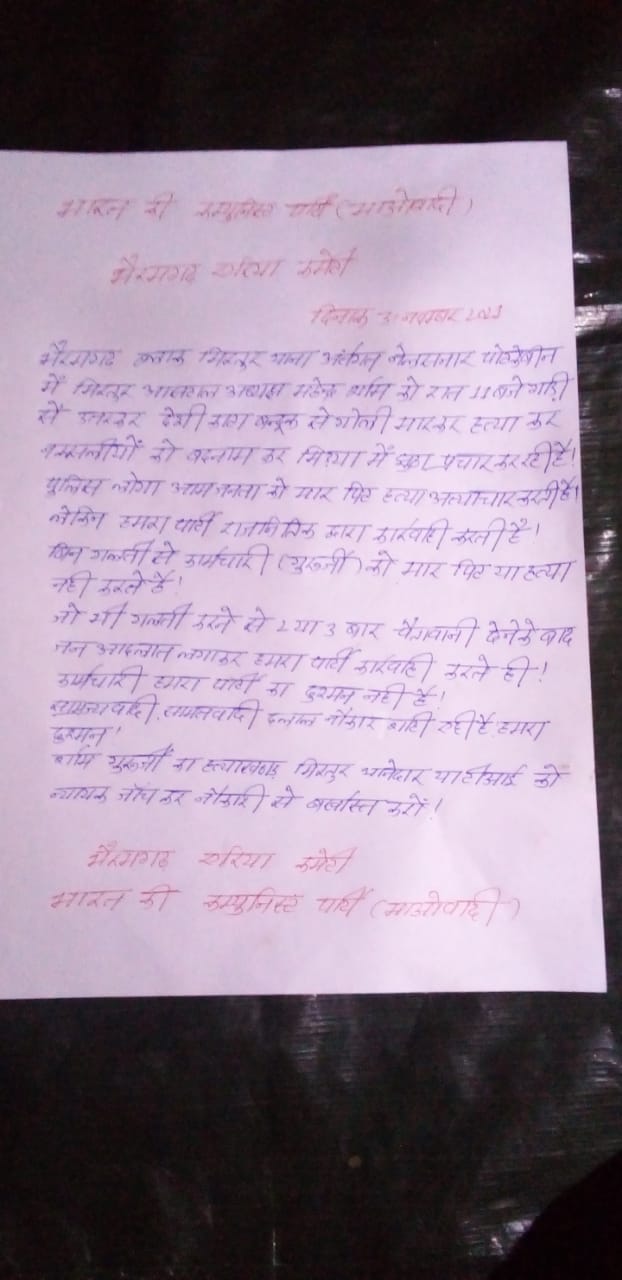 भारत की कम्युनिस्ट पार्टी (माओवादी)
भैरमगढ़ एरिया कमेटी
दिनांक 3 नवम्बर 2021
भैरमगढ़ ब्लाक मिरतुर थाना अंर्तगत
में मिरतुर को रात 11 बजे गाड़ी
से उतरकर देशी बन्दूक से गोली मारकर हत्या कर
नक्सलीयों को बदनाम कर में झूठा प्रचार कर रही है!
पुलिस लोगा आम जनता को मार पिट हत्या अत्याचार करती है!
लेकिन हमरा पार्टी राजनितिक द्वारा कार्रवाही करती है!
बिन गलती से कर्मचारी (गुरूजी) को मार पिट या हत्या
नही करते है!
जो भी गलती करने से 2 या 3 बार देने के बाद
जन आदलात लगाकर हमरा पार्टी कार्रवाही करते ही!
कर्मचारी हमरा पार्टी का दुश्मन नही है!
सामन्तवादी दलाल नौकर शाही रही है हमरा
दुश्मन!
गुरूजी का हत्याकाण्ड मिरतुर थानेदार या टीआई को
जाँच कर नौकरी से बर्खास्त करो!
भैरमगढ़ एरिया कमेटी
भारत की कम्युनिस्ट पार्टी (माओवादी)